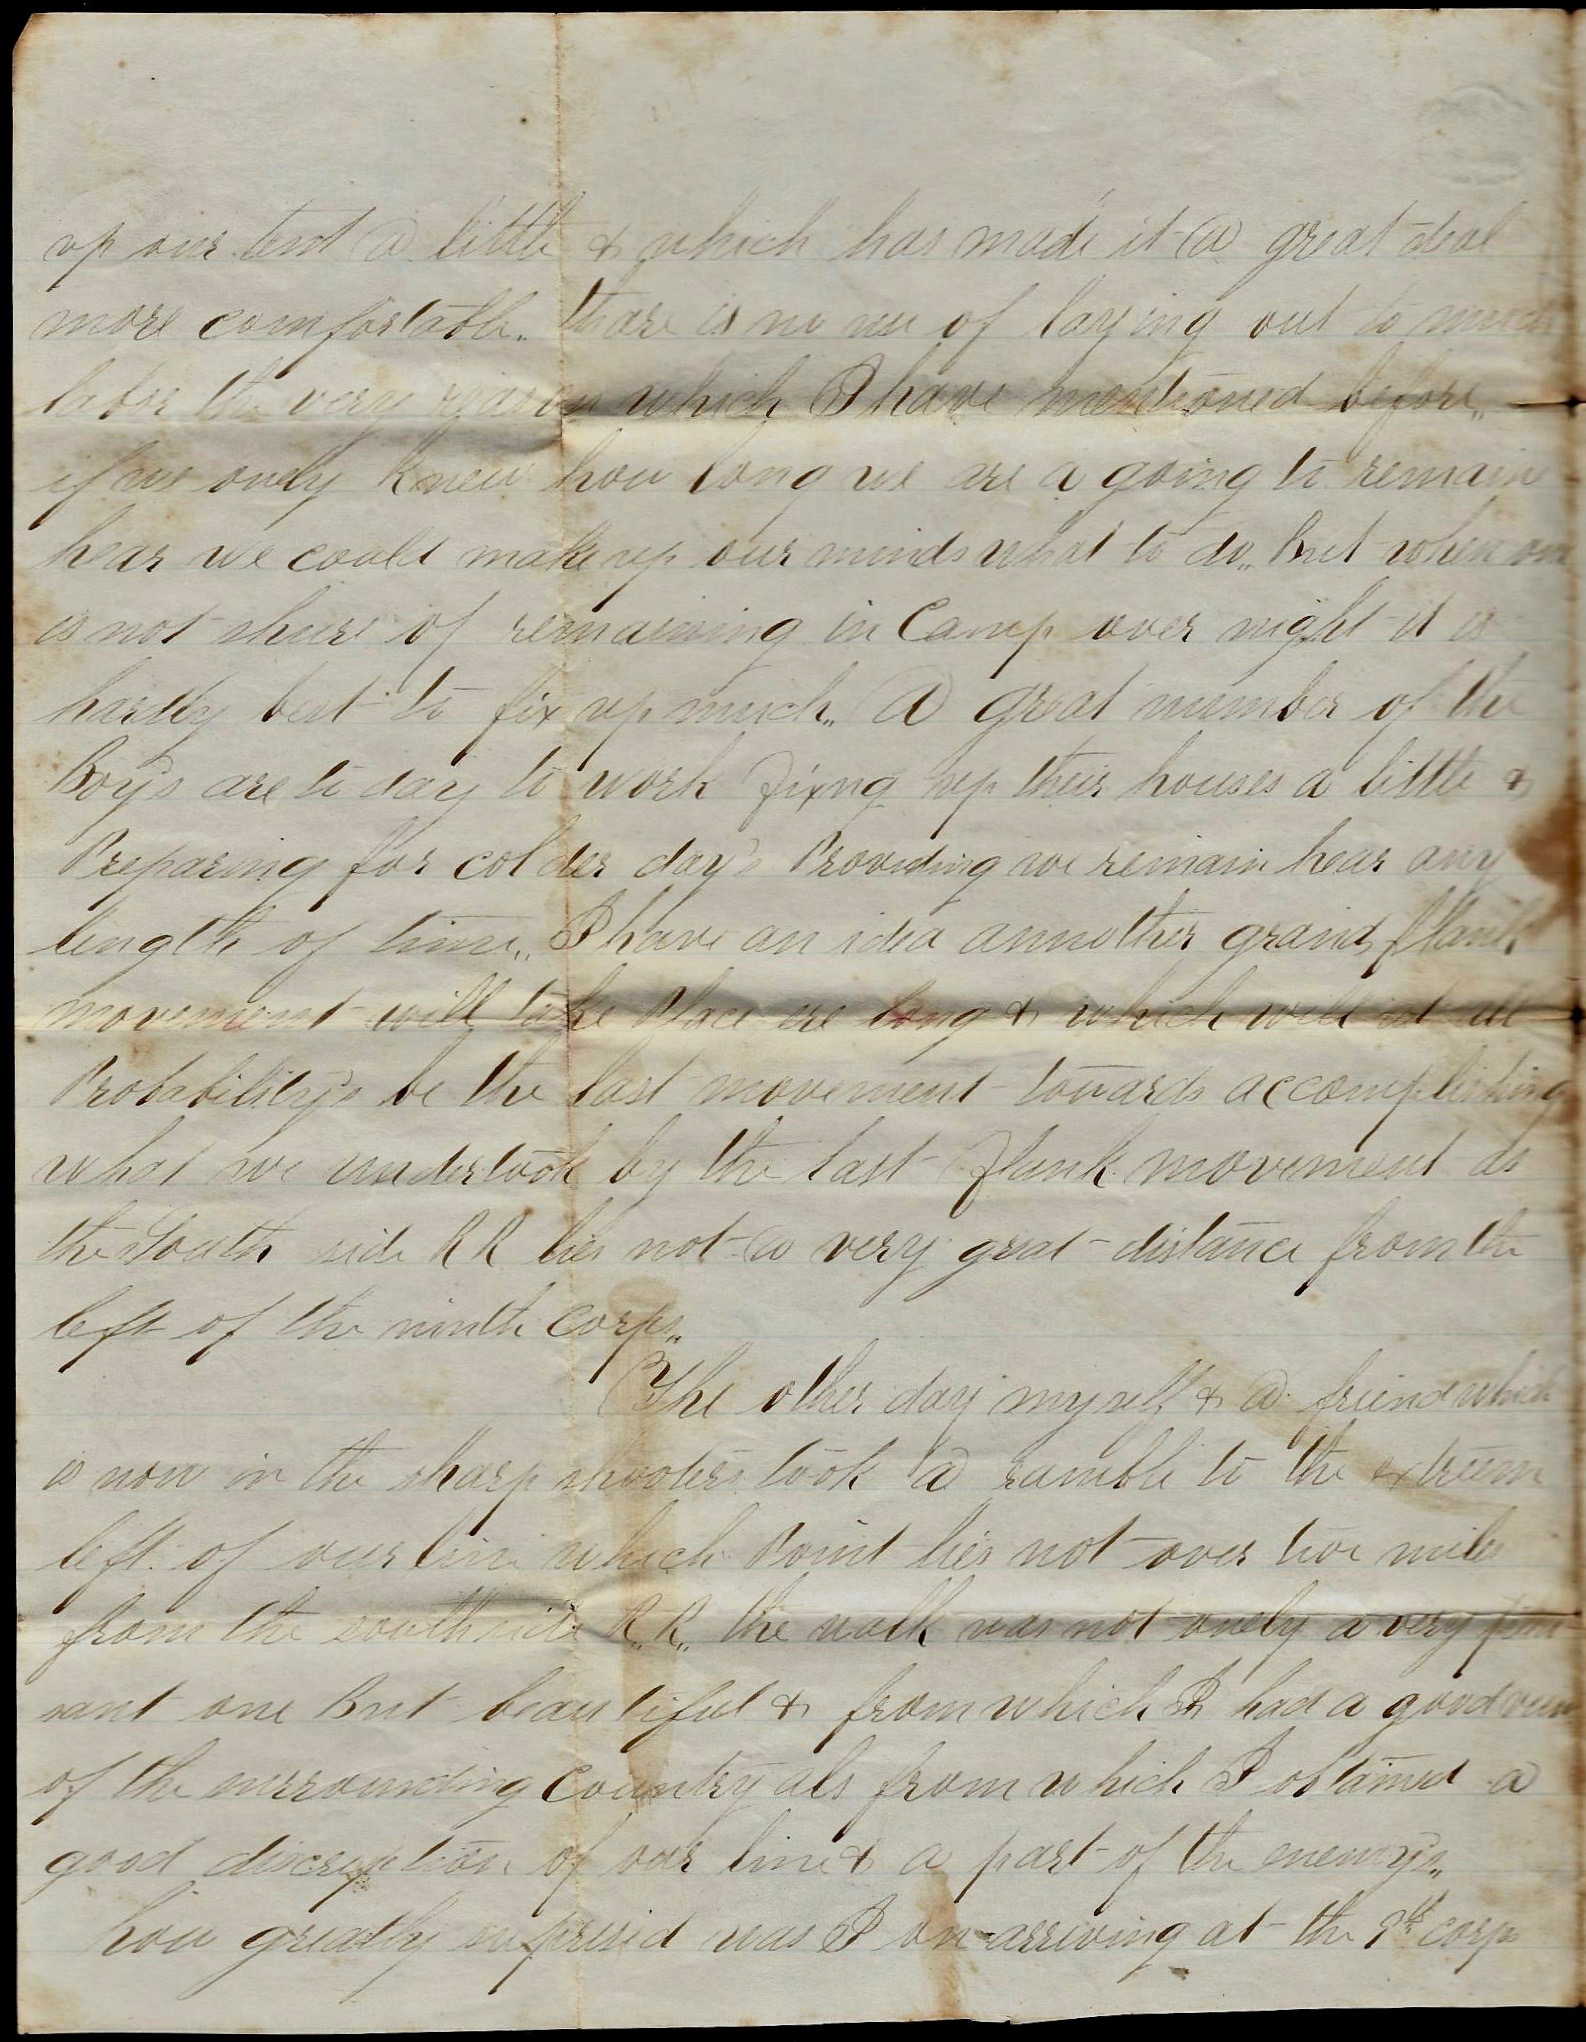 up our tent a little & which has made it a great deal
more comfortable. thare is no use of laying out to much
labor the very reason which I have mentioned before
if we only knew how long we are a going to remain
hear we could make up our minds what to do. But when one
is not shure of remaining in Camp over night it is
hardly best to fix up much. A great number of the
Boys are to day to work fixing up their houses a little &
Preparing for colder day's Providing we remain hear any
length of time. I have an idea annother grand flank
movement will take Place ere long & which will in all
Probability's be the last movement towards accomplishing
what we undertook by the last flank movement as
the South side R R lies not a very great distance from the
left of the ninth Corps.
The other day myself & a friend which
is now in the sharp shooters took a ramble to the extreem
left of our line which Point lies not over two miles
from the south side R.R. the walk was not onely a very plea
sant one But beautiful & from which I had a good view
of the surrounding Country als from which I obtained a
good discription of our line & a part of the enemy's.
how greatly suprised was I on arriving at the 9th corps